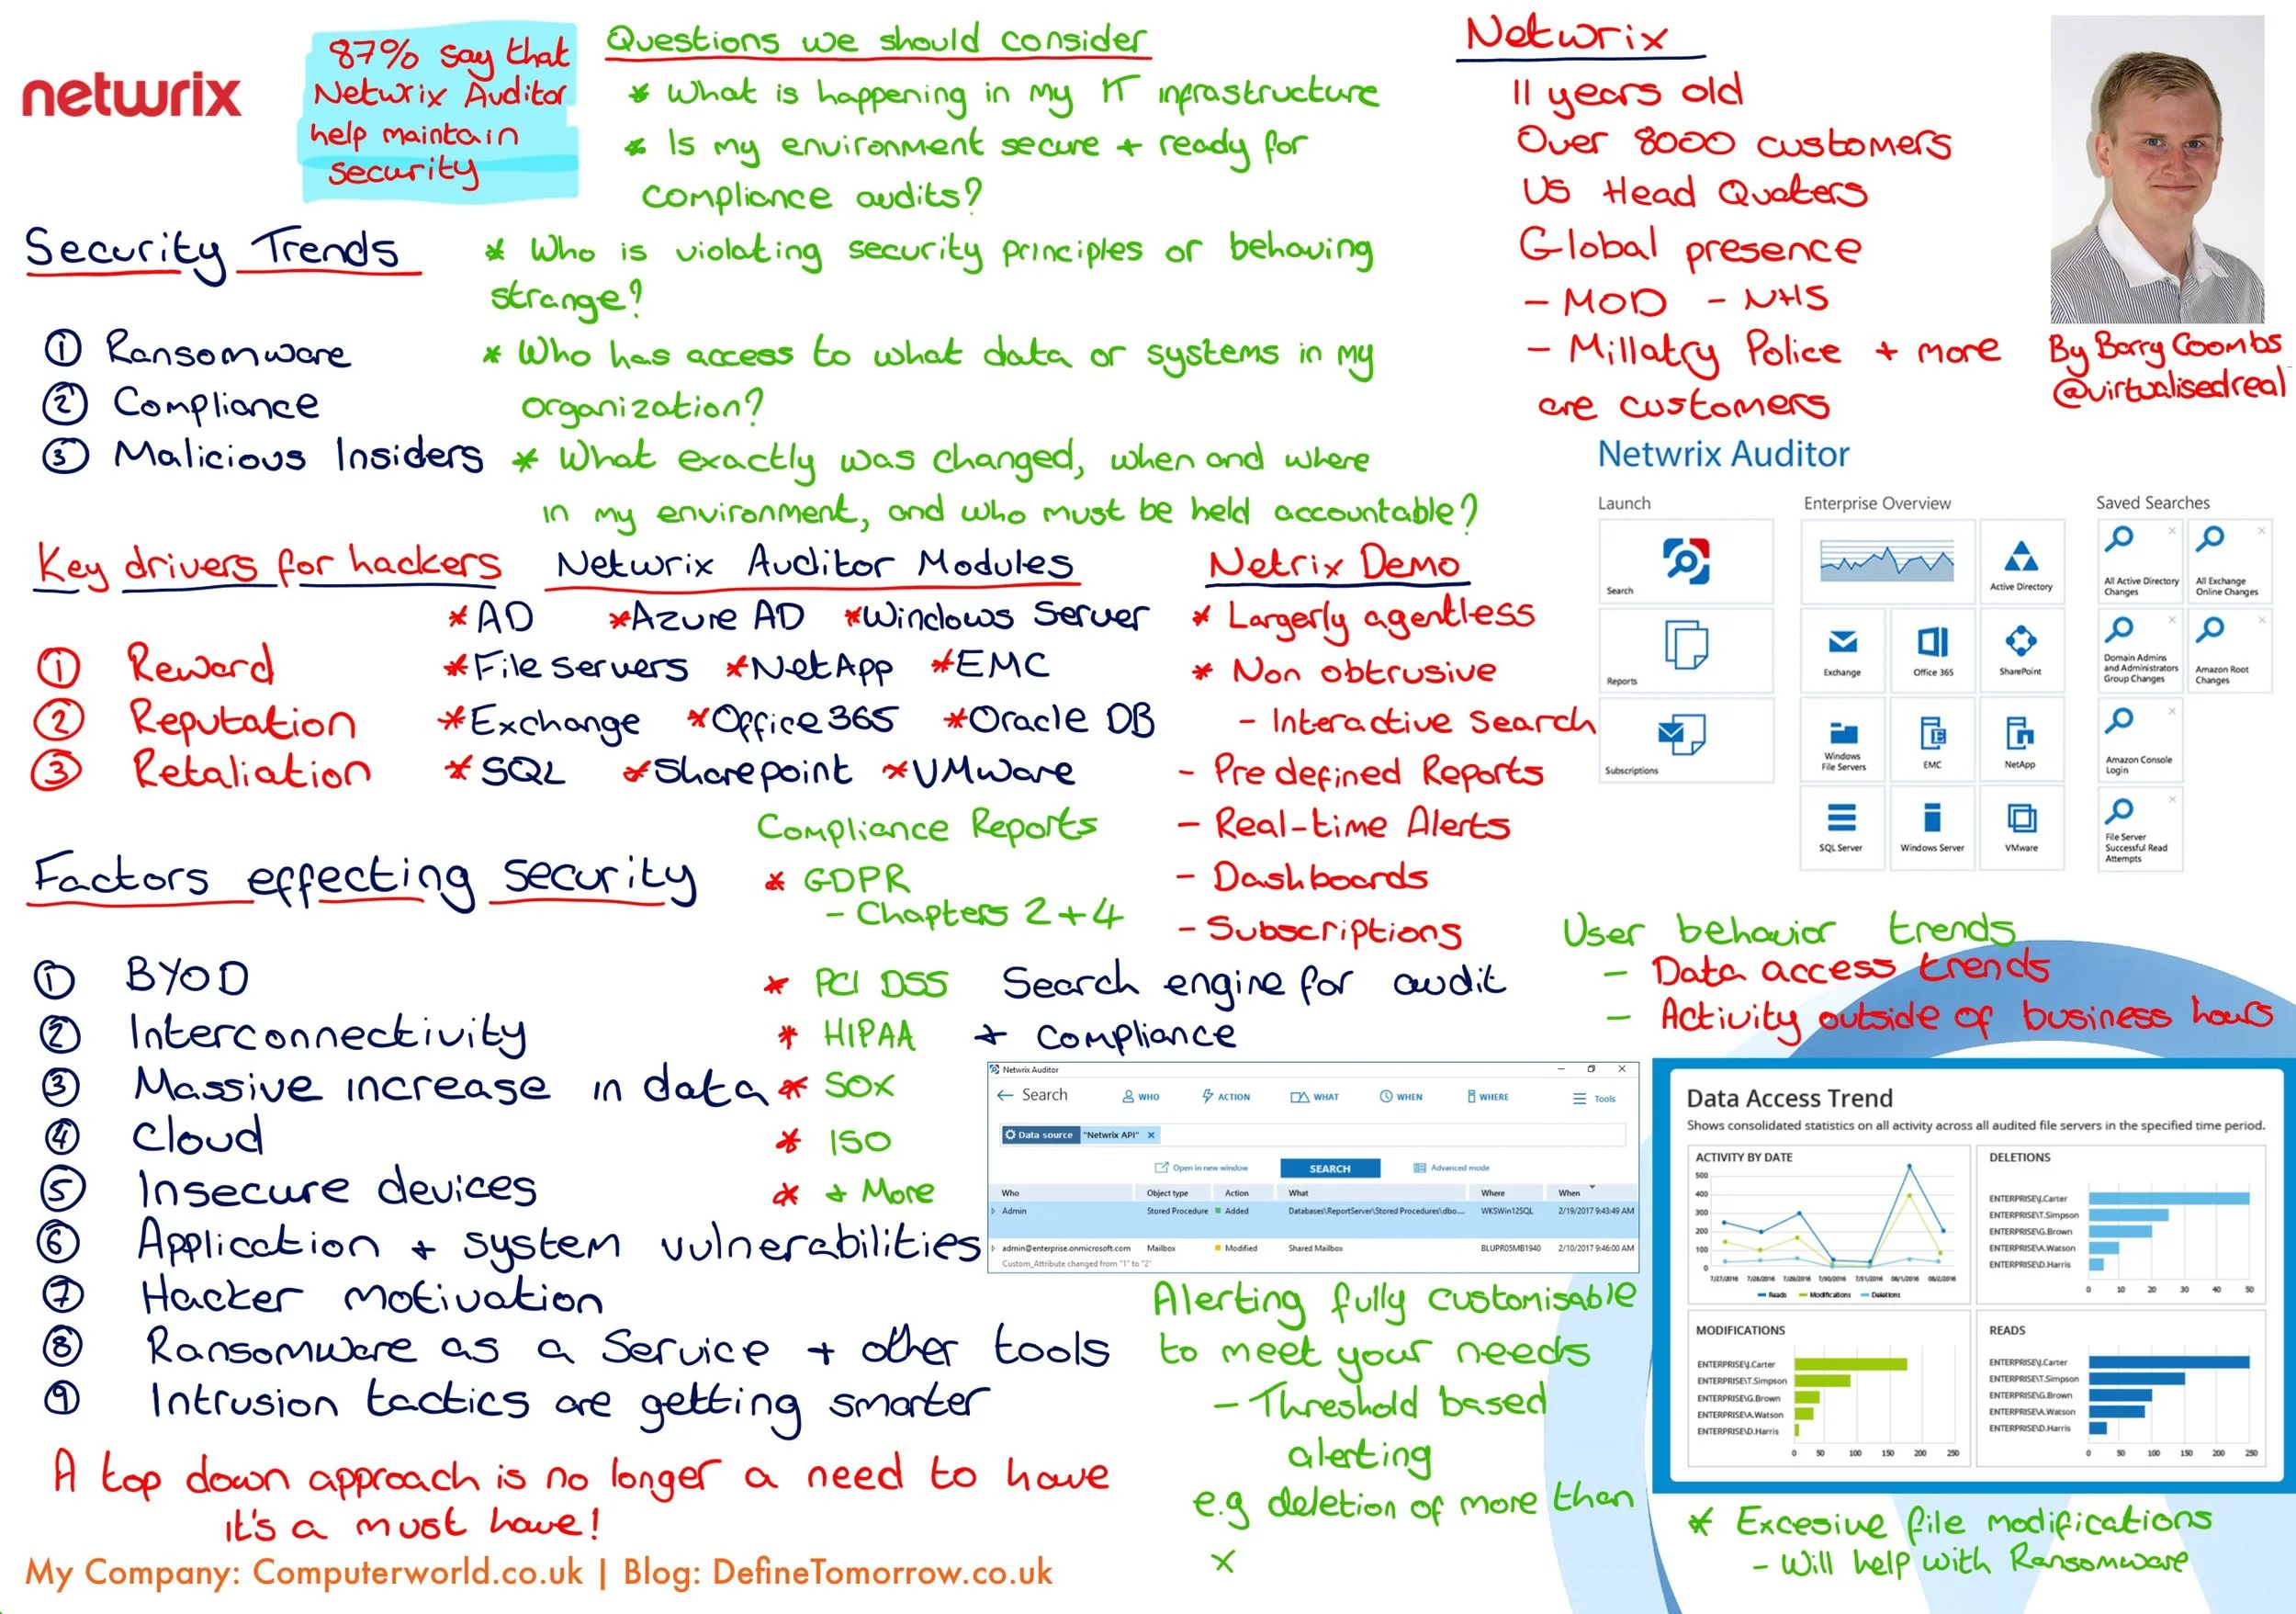 netwrix
87% say that
Netwrix Auditor
help maintain
security
Questions we should consider
* What is happening in my IT infrastructure
* Is my environment secure + ready for
compliance audits?
* Who is violating security principles or behaving
strange?
* Who has access to what data or systems in my
organization?
* What exactly was changed, when and where
in my environment, and who must be held accountable?
Netwrix
11 years old
Over 8000 customers
US Head Quaters
Global presence
- MOD - NHS
- Millatry Police + more
are customers
By Barry Coombs
@virtualisedreal
Security Trends
① Ransomware
② Compliance
③ Malicious Insiders
Key drivers for hackers
① Reward
② Reputation
③ Retaliation
Netwrix Auditor Modules
* AD * Azure AD * Windows Server
* File servers * NetApp * EMC
* Exchange * Office 365 * Oracle DB
* SQL * Sharepoint * VMware
Netrix Demo
* Largerly agentless
* Non obtrusive
- Interactive Search
- Pre defined Reports
- Real-time Alerts
- Dashboards
- Subscriptions
Netwrix Auditor
Launch
Search
Reports
Subscriptions
Enterprise Overview
Active Directory
Exchange
Office 365
SharePoint
Windows
File Servers
EMC
NetApp
SQL Server
Windows Server
VMware
Saved Searches
All Active Directory
Changes
All Exchange
Online Changes
Domain Admins
and Administrators
Group Changes
Amazon Root
Changes
Amazon Console
Login
File Server
Successful Read
Attempts
Factors effecting security
① BYOD
② Interconnectivity
③ Massive increase in data
④ Cloud
⑤ Insecure devices
⑥ Application + system vulnerabilities
⑦ Hacker motivation
⑧ Ransomware as a Service + other tools
⑨ Intrusion tactics are getting smarter
A top down approach is no longer a need to have
it's a must have!
Compliance Reports
* GDPR
- Chapters 2+4
* PCI DSS
* HIPAA
* SOX
* ISO
* + More
Search engine for audit
+ compliance
Netwrix Auditor
Search
WHO
ACTION
WHAT
WHEN
WHERE
Tools
Data source "Netwrix API" ×
Open in new window
SEARCH
Advanced mode
Who Object type Action What Where When
Admin Stored Procedure Added Databases\ReportServer\Stored Procedures\dbo.... WKSWin12SQL 2/19/2017 9:43:49 AM
admin@enterprise.onmicrosoft.com Mailbox Modified Shared Mailbox BLUPR05MB1940 2/10/2017 9:46:00 AM
Custom_Attribute changed from "1" to "2"
Alerting fully customisable
to meet your needs
- Threshold based
alerting
e.g deletion of more than
x
User behavior trends
- Data access trends
- Activity outside of business hours
Data Access Trend
Shows consolidated statistics on all activity across all audited file servers in the specified time period.
ACTIVITY BY DATE
500
400
300
200
100
0
7/27/2016 7/28/2016 7/29/2016 7/30/2016 7/31/2016 08/1/2016 08/2/2016
Reads Modifications Deletions
DELETIONS
ENTERPRISE\J.Carter
ENTERPRISE\T.Simpson
ENTERPRISE\G.Brown
ENTERPRISE\A.Watson
ENTERPRISE\D.Harris
0 10 20 30 40 50
MODIFICATIONS
ENTERPRISE\J.Carter
ENTERPRISE\T.Simpson
ENTERPRISE\G.Brown
ENTERPRISE\A.Watson
ENTERPRISE\D.Harris
0 50 100 150 200 250
READS
ENTERPRISE\J.Carter
ENTERPRISE\T.Simpson
ENTERPRISE\G.Brown
ENTERPRISE\A.Watson
ENTERPRISE\D.Harris
0 50 100 150 200 250
* Excesive file modifications
- Will help with Ransomware
My Company: Computerworld.co.uk | Blog: DefineTomorrow.co.uk